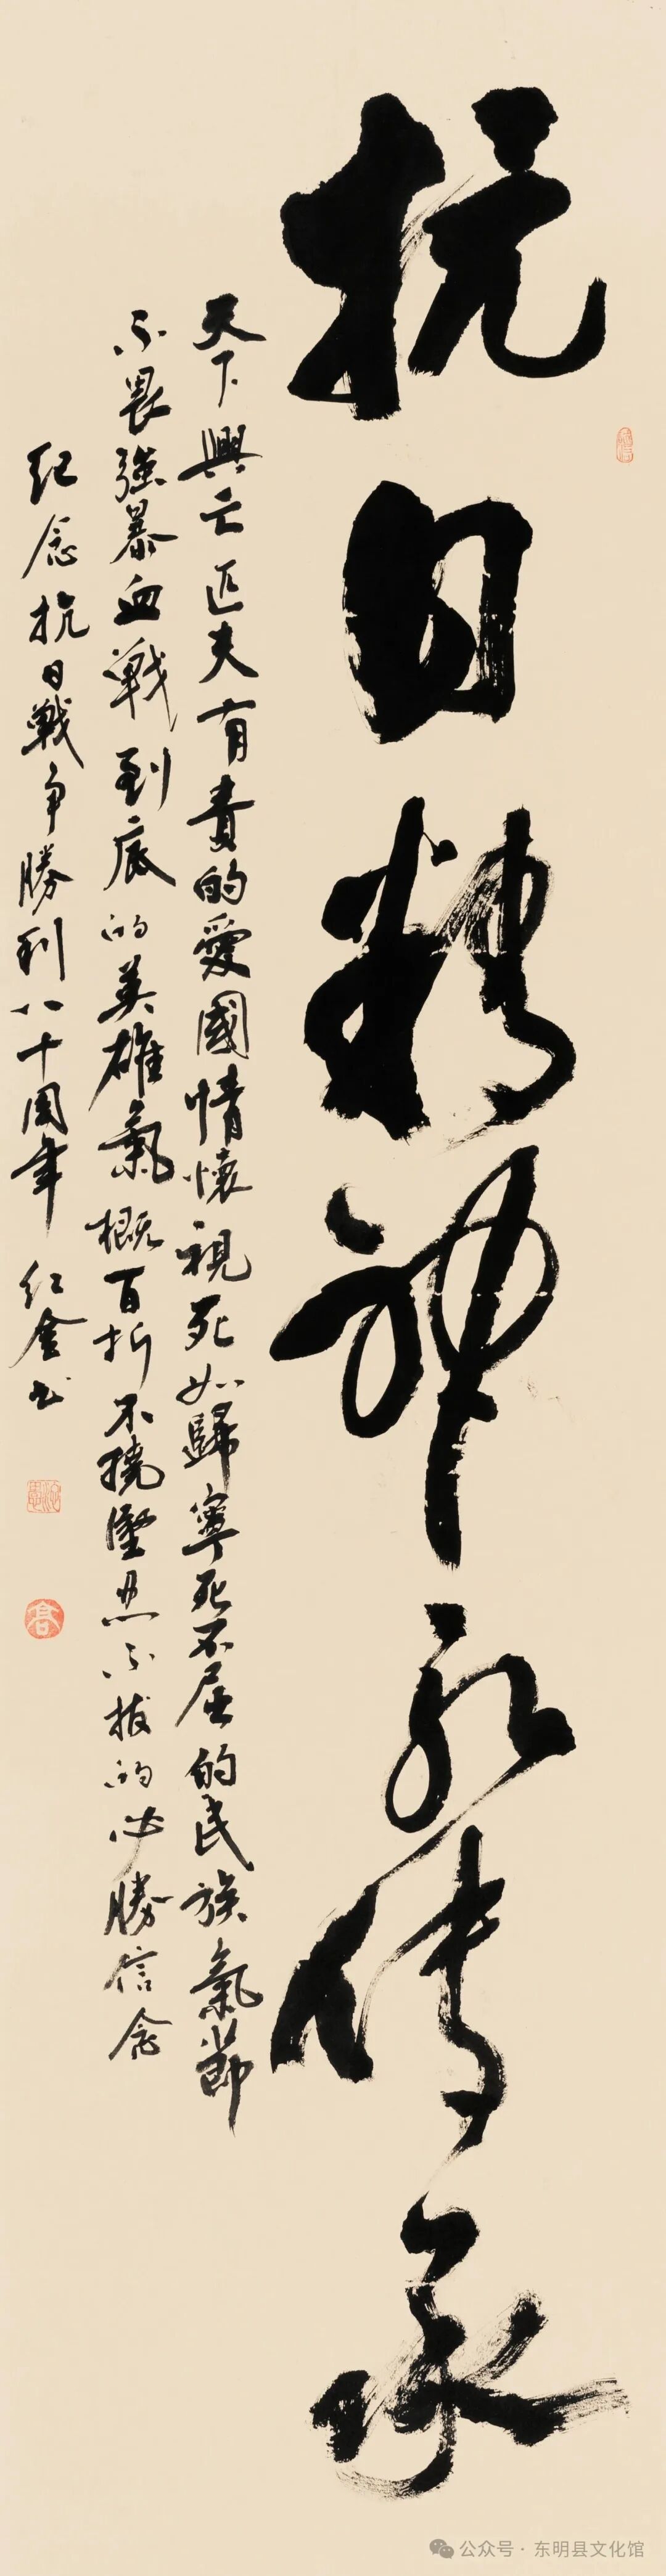 抗日精神永傳承
天下興亡匹夫有責的愛國情懷視死如歸寧死不屈的民族氣節
不畏強暴血戰到底的英雄氣概百折不撓堅忍不拔的必勝信念
紀念抗日戰争勝利八十周年 红金书
公众号·东明县文化馆